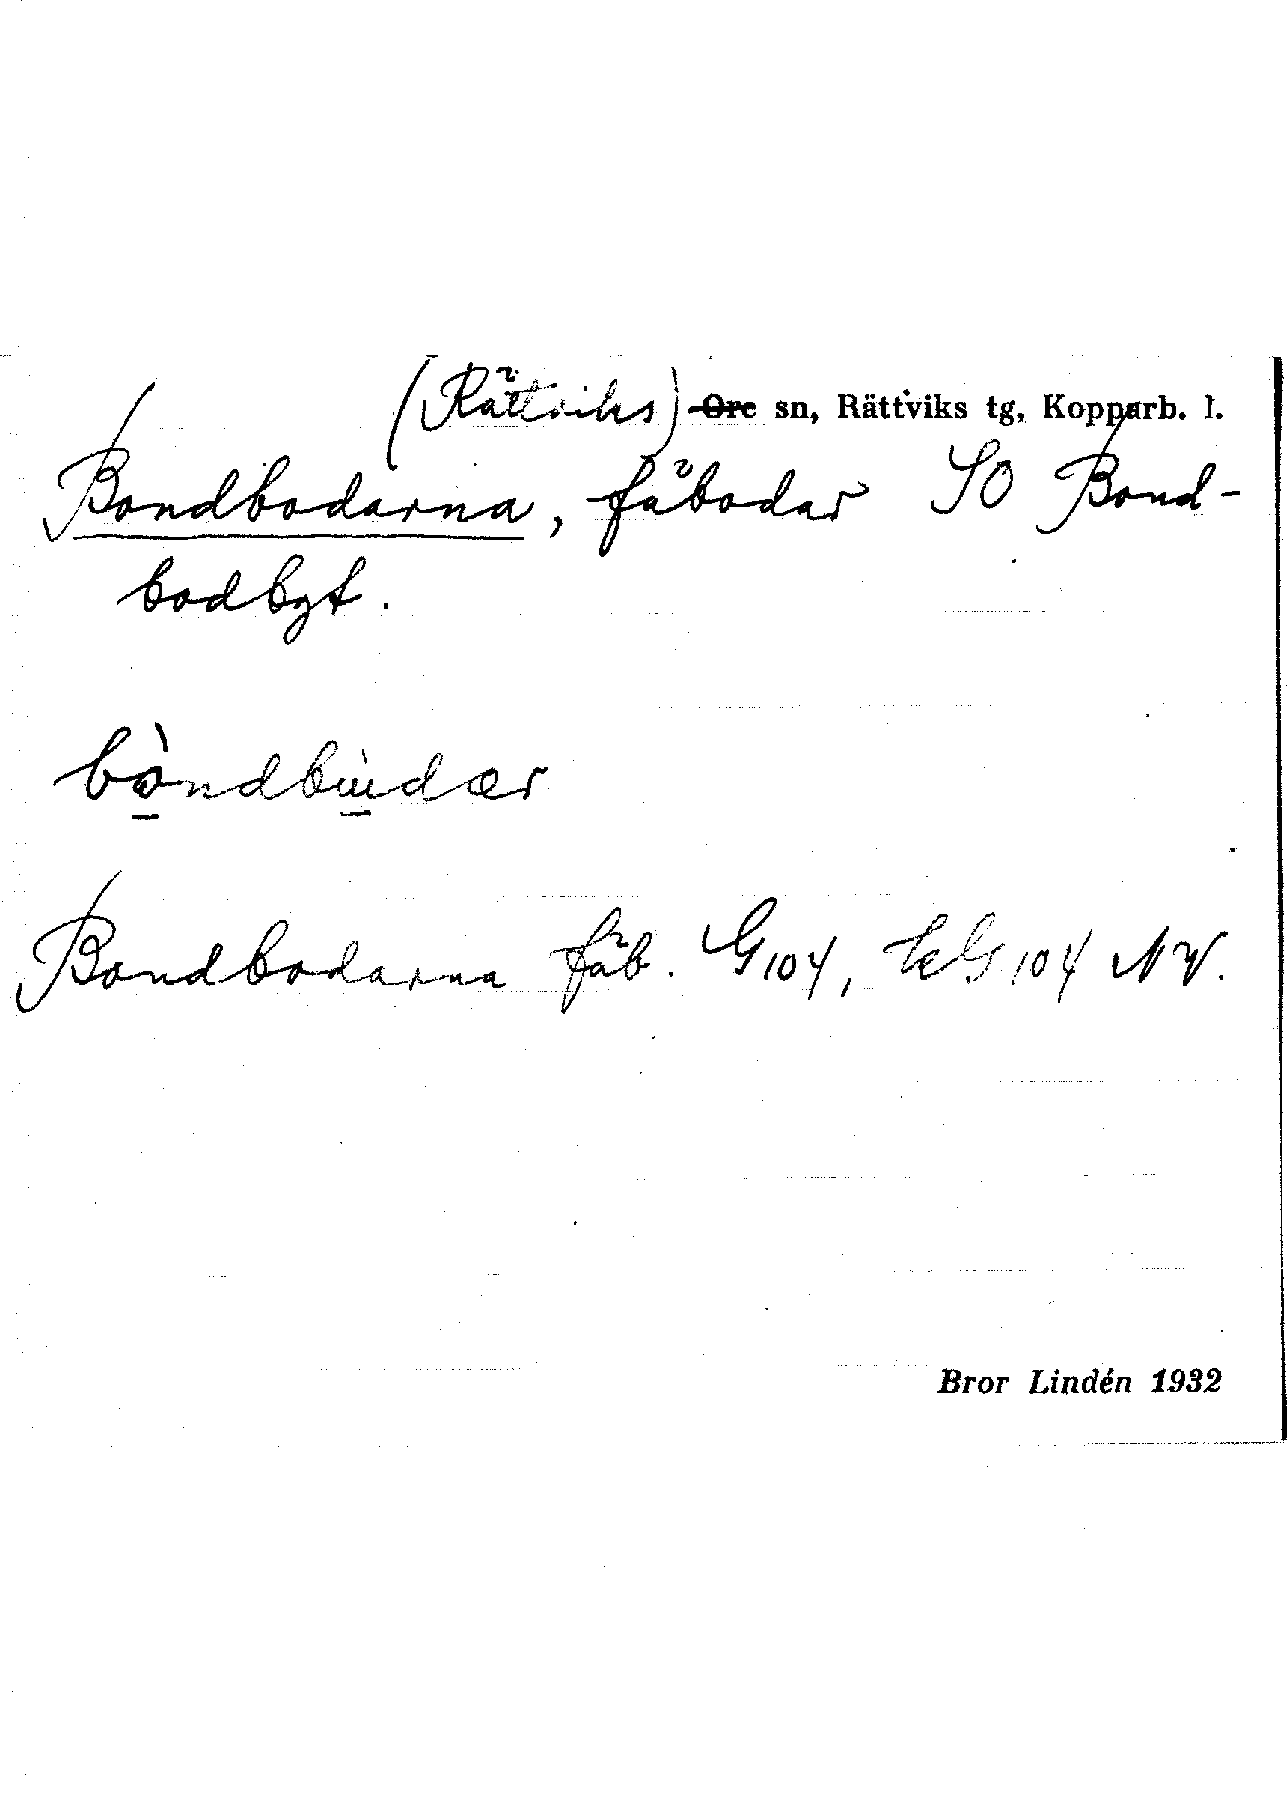 (Rättviks) Ore sn, Rättviks tg, Kopparb. l.
Bondbodarna, fäbodar SO Bond-
bodbgt.
bòndbùdær
Bondbodarna fäb. G104, G104 NV.
Bror Lindén 1932